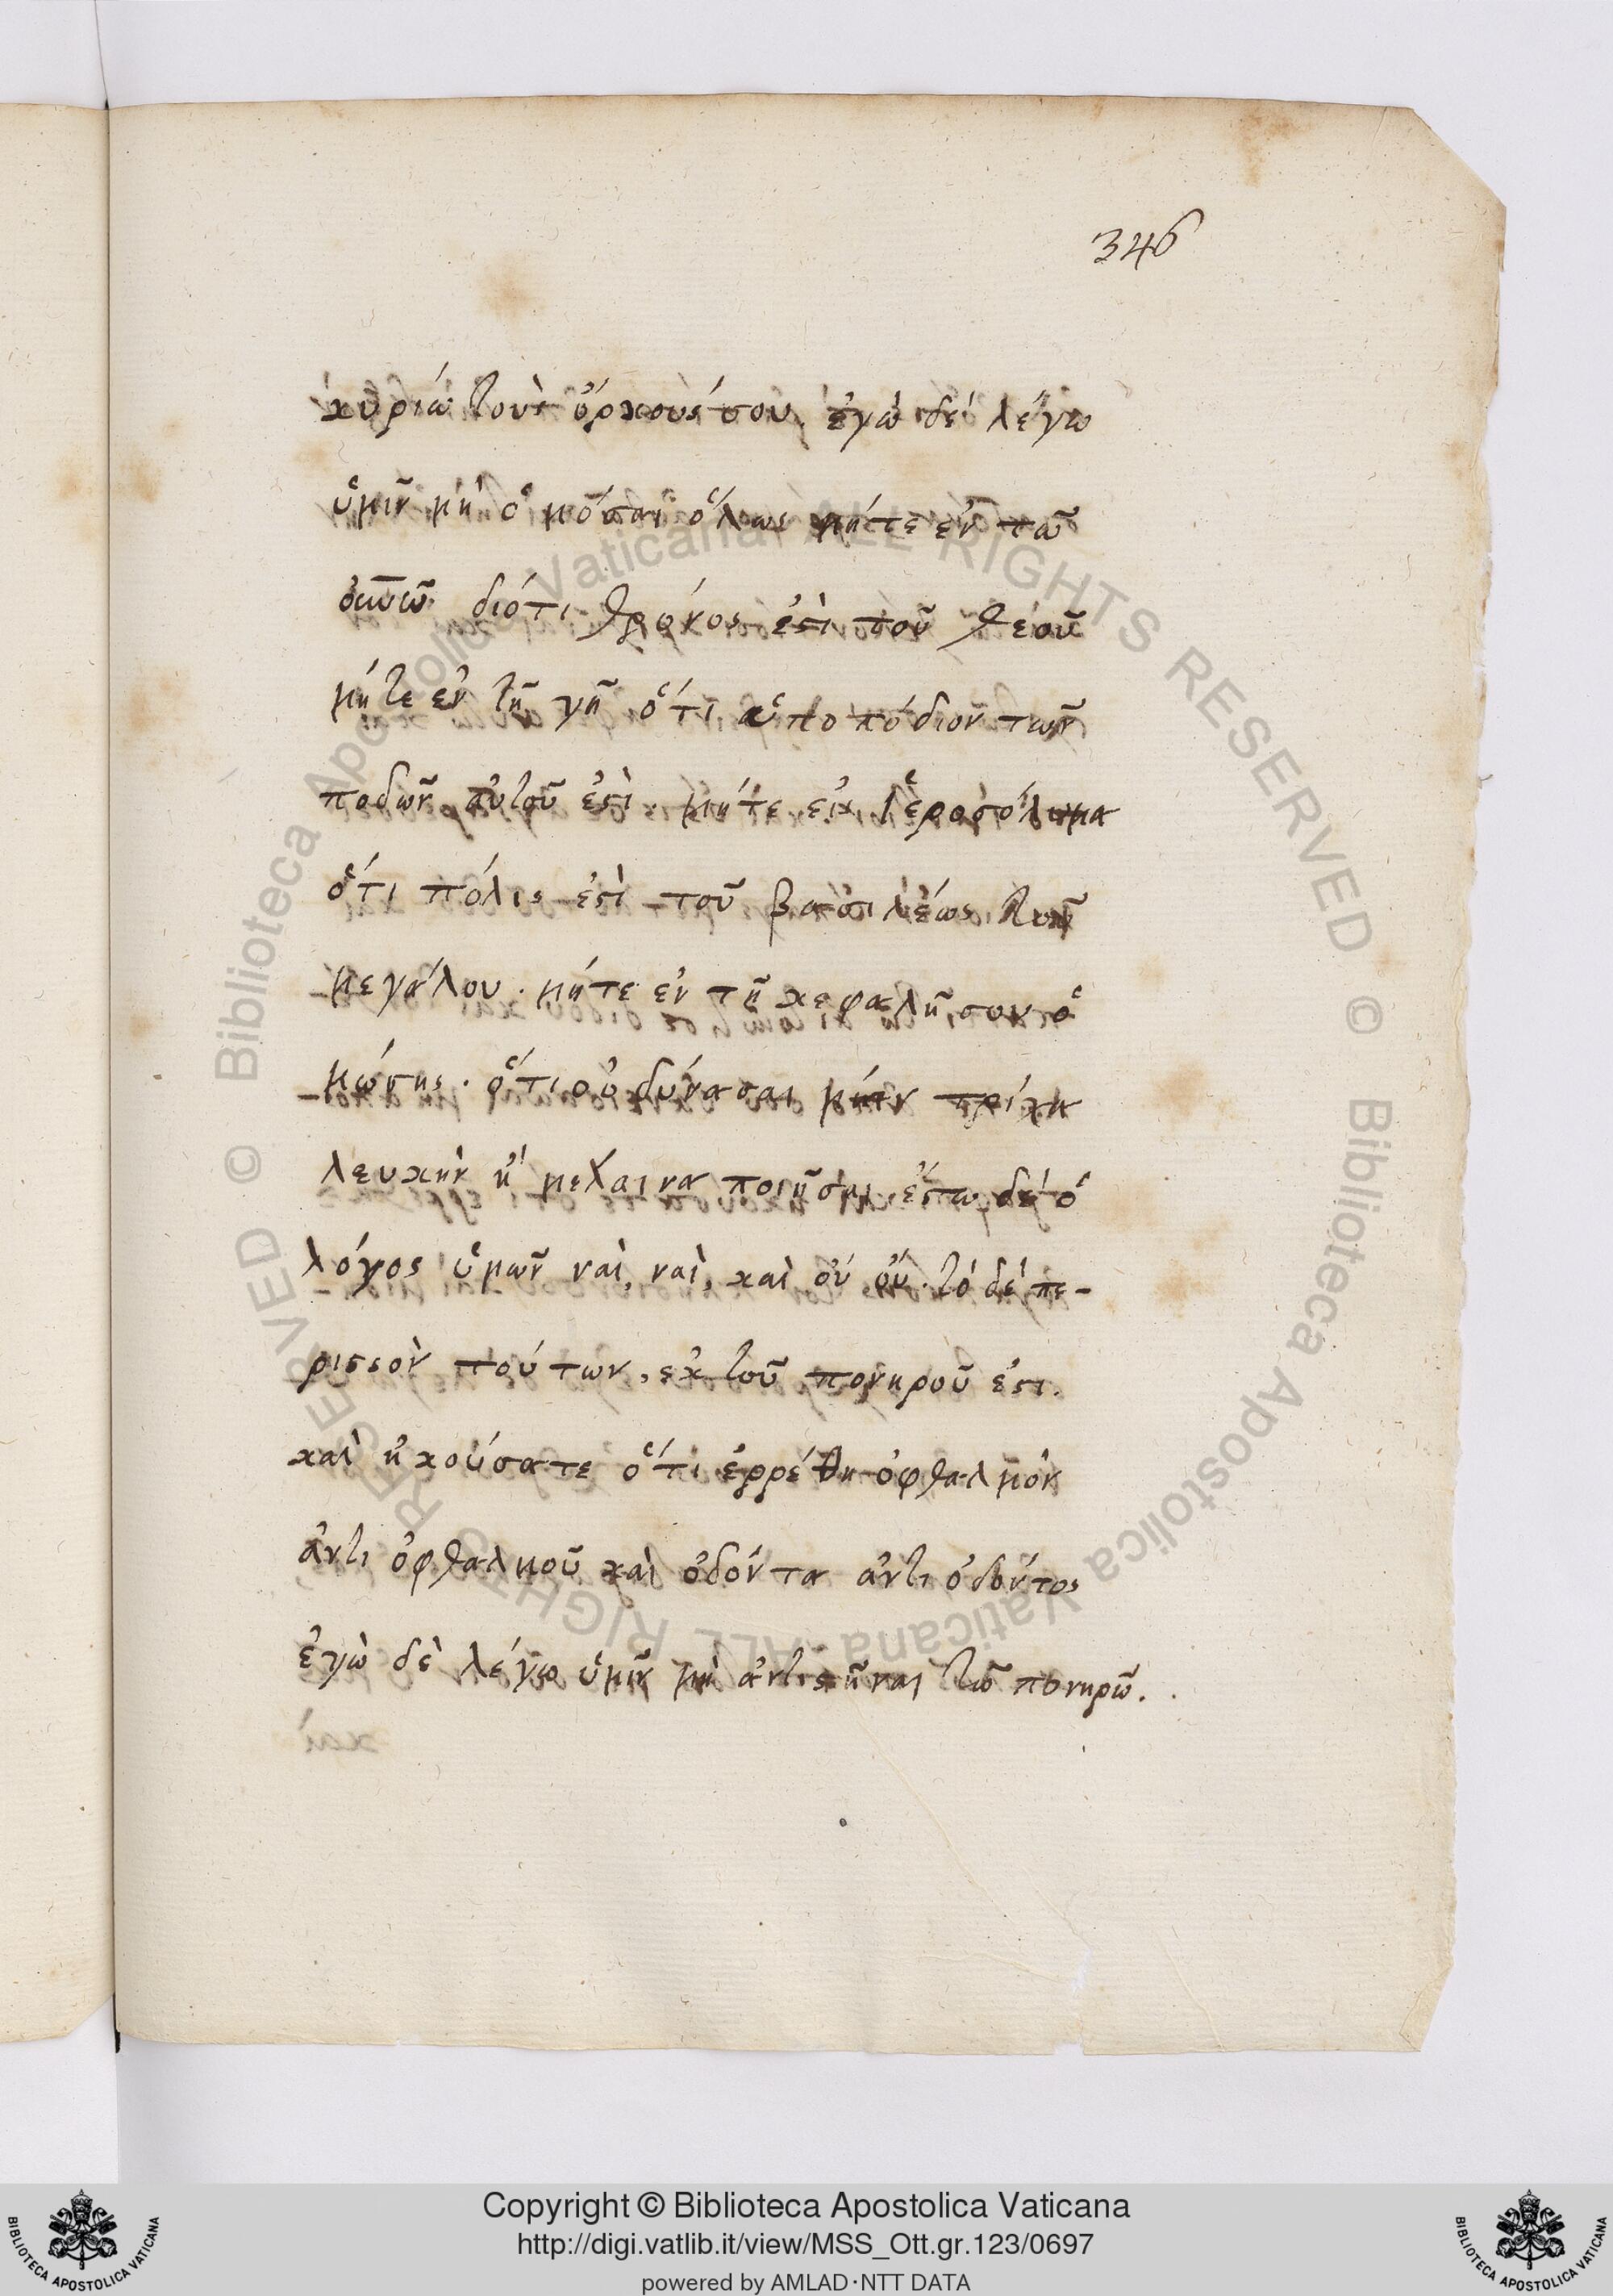 346
κυρίω τοὺς ὅρκους σου. ἐγὼ δέ λέγω
ὑμῖν μὴ ὁ μόσαι ὅλως μήτε ἐν τῶ
οὐνῶ διότι θρόνος ἐστὶ τοῦ θεοῦ
μήτε ἐν τῆ γῆ ὅτι ὑποπόδιον τῶν
ποδῶν αὐτοῦ ἐστὶ. μήτε εἰς ἱεροσόλυμα
ὅτι πόλις ἐστὶ τοῦ βασιλέως τοῦ
μεγάλου. μήτε ἐν τῆ κεφαλῆ σου ὁ
μώσης. ὅτι οὐ δύνασαι μίαν τρίχα
λευκὴν ἤ μελαινα ποιῆσαι ἔστω δέ ὁ
λόγος ὑμῶν ναὶ, ναὶ, καὶ οὐ οὔ. τό δέ πε-
ρισσὸν τούτων, ἐκ τοῦ πονηροῦ ἐστι.
καὶ ἠκούσατε ὅτι ἐρρέθη ὀφθαλμόν
ἀντι ὀφθαλμοῦ καὶ ὀδόντα ἀντι ὀδόντος
ἐγὼ δὲ λέγω ὑμῖν μὴ ἀντιστῆναι τῶ πονηρῶ.
Biblioteca Apostolica Vaticana ALL RIGHTS RESERVED ©
Biblioteca Apostolica Vaticana ALL RIGHTS RESERVED ©
Copyright © Biblioteca Apostolica Vaticana
http://digi.vatlib.it/view/MSS_Ott.gr.123/0697
powered by AMLAD·NTT DATA
BIBLIOTECA APOSTOLICA VATICANA
BIBLIOTECA APOSTOLICA VATICANA